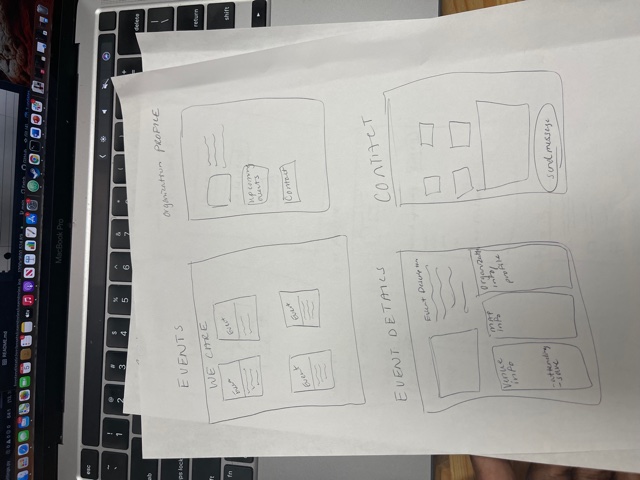 README.md
MacBook Pro
esc
delete
return
shift
fn
EVENTS
WE CARE
Event
Event
Event
Event
Organization PROFILE
upcoming
events
Contact
EVENT DETAILS
Event Description
Venue
info
-attending
-save
MAP
info
Organization
info/
profile
CONTACT
send message